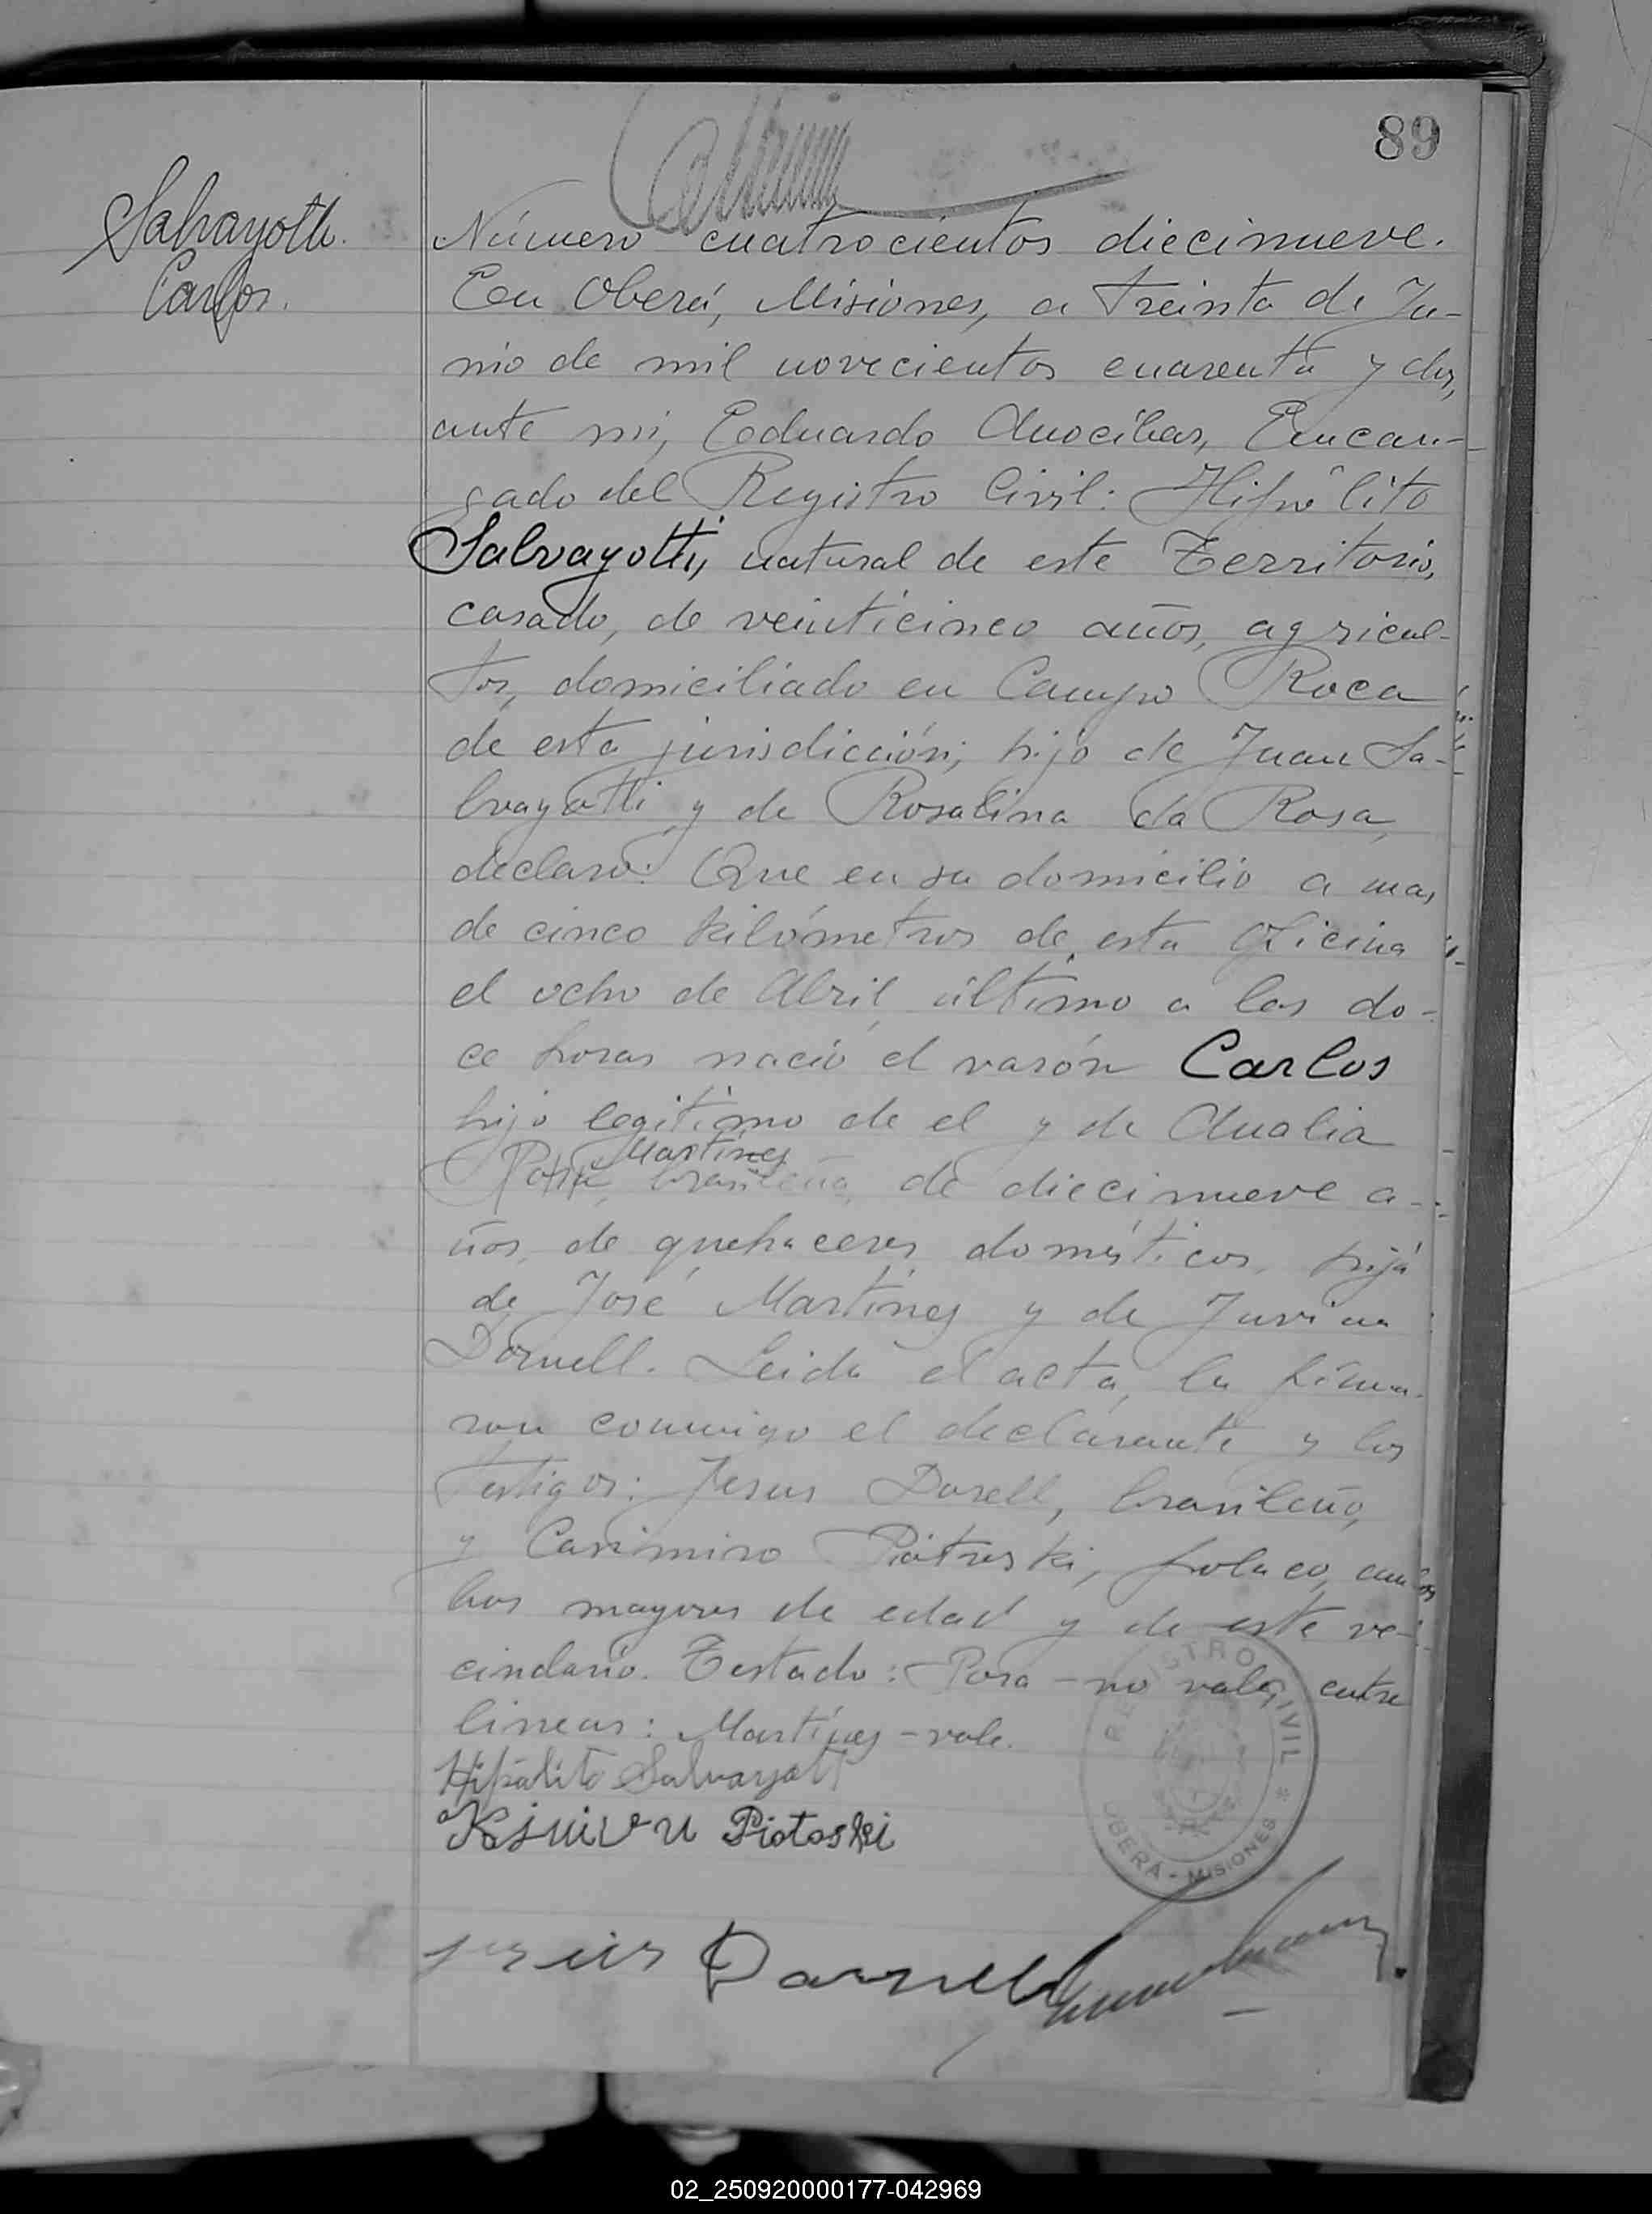 89
Salvayotti
Carlos.
Número cuatrocientos diecinueve.
En Oberá, Misiones, a treinta de Ju-
nio de mil novecientos cuarenta y dos,
ante mi, Eduardo Anocibar, Encar-
gado del Registro Civil: Hipólito
Salvayotti, natural de este Territorio,
casado, de veinticinco años, agricul-
tor, domiciliado en Campo Roca
de esta jurisdicción; hijo de Juan Sa-
lvayotti y de Rosalina da Rosa,
declaro: Que en su domicilio a mas
de cinco kilómetros de esta Oficina
el ocho de Abril último a las do-
ce horas nació el varón Carlos
hijo legitimo de el y de Analia
Martínez
brasileña, de diecinueve a-
ños, de quehaceres domésticos, hija
de José Martínez y de
Dornell. Leida el acta, la firma-
ron conmigo el declarante y los
testigos: Jesus Dorell, brasileño,
y Casimiro Piotroski, polaco, am-
bos mayores de edad y de este ve-
cindario. Testado: Rosa - no vale, entre
lineas: Martínez - vale.
Hipólito Salvayotti
Piotoski
Darnell
REGISTRO CIVIL
OBERÁ - MISIONES
02_250920000177-042969